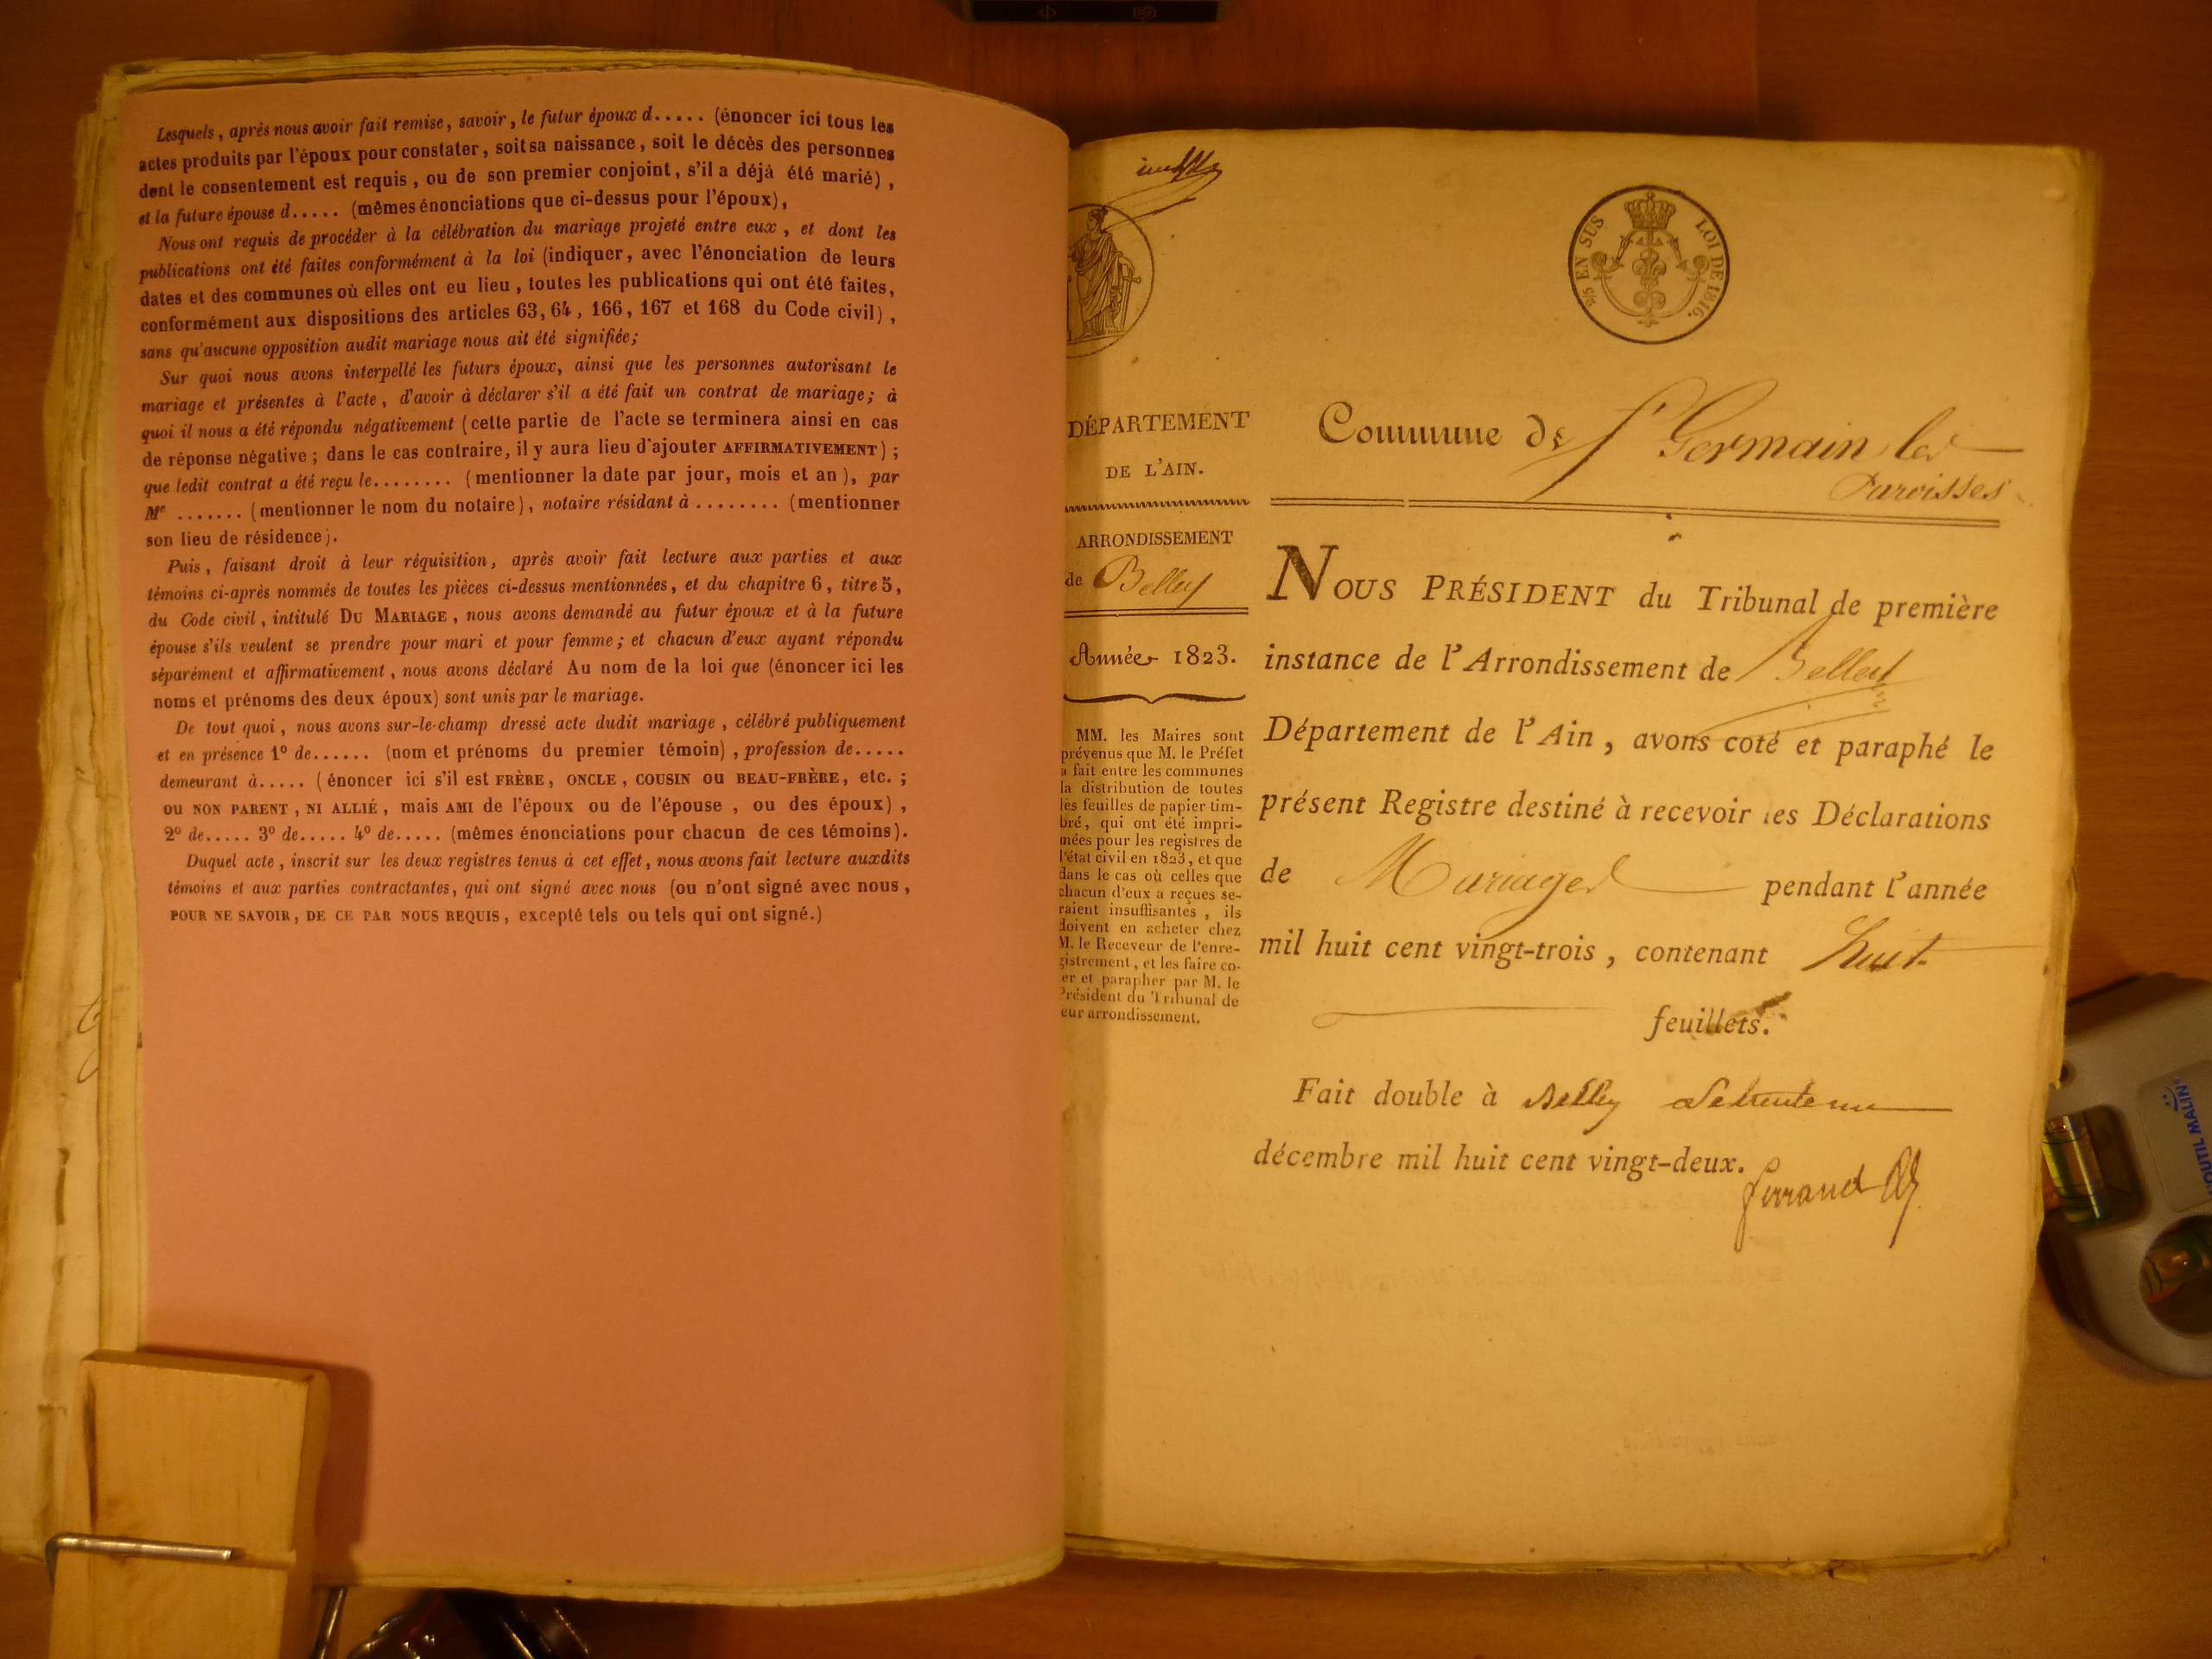 Lesquels, après nous avoir fait remise, savoir, le futur époux d..... (énoncer ici tous les
actes produits par l'époux pour constater, soit sa naissance, soit le décès des personnes
dont le consentement est requis, ou de son premier conjoint, s'il a déjà été marié),
et la future épouse d..... (mêmes énonciations que ci-dessus pour l'époux),
Nous ont requis de procéder à la célébration du mariage projeté entre eux, et dont les
publications ont été faites conformément à la loi (indiquer, avec l'énonciation de leurs
dates et des communes où elles ont eu lieu, toutes les publications qui ont été faites,
conformément aux dispositions des articles 63, 64, 166, 167 et 168 du Code civil),
sans qu'aucune opposition audit mariage nous ait été signifiée;
Sur quoi nous avons interpellé les futurs époux, ainsi que les personnes autorisant le
mariage et présentes à l'acte, d'avoir à déclarer s'il a été fait un contrat de mariage; à
quoi il nous a été répondu négativement (cette partie de l'acte se terminera ainsi en cas
de réponse négative; dans le cas contraire, il y aura lieu d'ajouter AFFIRMATIVEMENT);
que ledit contrat a été reçu le........ (mentionner la date par jour, mois et an), par
Me ....... (mentionner le nom du notaire), notaire résidant à ........ (mentionner
son lieu de résidence).
Puis, faisant droit à leur réquisition, après avoir fait lecture aux parties et aux
témoins ci-après nommés de toutes les pièces ci-dessus mentionnées, et du chapitre 6, titre 5,
du Code civil, intitulé DU MARIAGE, nous avons demandé au futur époux et à la future
épouse s'ils veulent se prendre pour mari et pour femme; et chacun d'eux ayant répondu
séparément et affirmativement, nous avons déclaré Au nom de la loi que (énoncer ici les
noms et prénoms des deux époux) sont unis par le mariage.
De tout quoi, nous avons sur-le-champ dressé acte dudit mariage, célébré publiquement
et en présence 1º de...... (nom et prénoms du premier témoin), profession de.....
demeurant à..... (énoncer ici s'il est FRÈRE, ONCLE, COUSIN ou BEAU-FRÈRE, etc.;
ou NON PARENT, NI ALLIÉ, mais AMI de l'époux ou de l'épouse, ou des époux),
2º de..... 3º de..... 4º de..... (mêmes énonciations pour chacun de ces témoins).
Duquel acte, inscrit sur les deux registres tenus à cet effet, nous avons fait lecture auxdits
témoins et aux parties contractantes, qui ont signé avec nous (ou n'ont signé avec nous,
POUR NE SAVOIR, DE CE PAR NOUS REQUIS, excepté tels ou tels qui ont signé.)
2/5 EN SUS LOI DE 1816.
DÉPARTEMENT
DE L'AIN.
ARRONDISSEMENT
de Belley
Année 1823.
MM. les Maires sont
prévenus que M. le Préfet
a fait entre les communes
la distribution de toutes
les feuilles de papier tim-
bré, qui ont été impri-
mées pour les registres de
l'état civil en 1823, et que
dans le cas où celles que
chacun d'eux a reçues se-
raient insuffisantes, ils
doivent en acheter chez
M. le Receveur de l'enre-
gistrement, et les faire co-
er et parapher par M. le
Président du Tribunal de
eur arrondissement.
Commune de St Germain les
Paroisses
NOUS PRÉSIDENT du Tribunal de première
instance de l'Arrondissement de Belley
Département de l'Ain, avons coté et paraphé le
présent Registre destiné à recevoir les Déclarations
de Mariages pendant l'année
mil huit cent vingt-trois, contenant huit
feuillets.
Fait double à Belley le trente un
décembre mil huit cent vingt-deux.
Ferrand
OUTIL MALIN